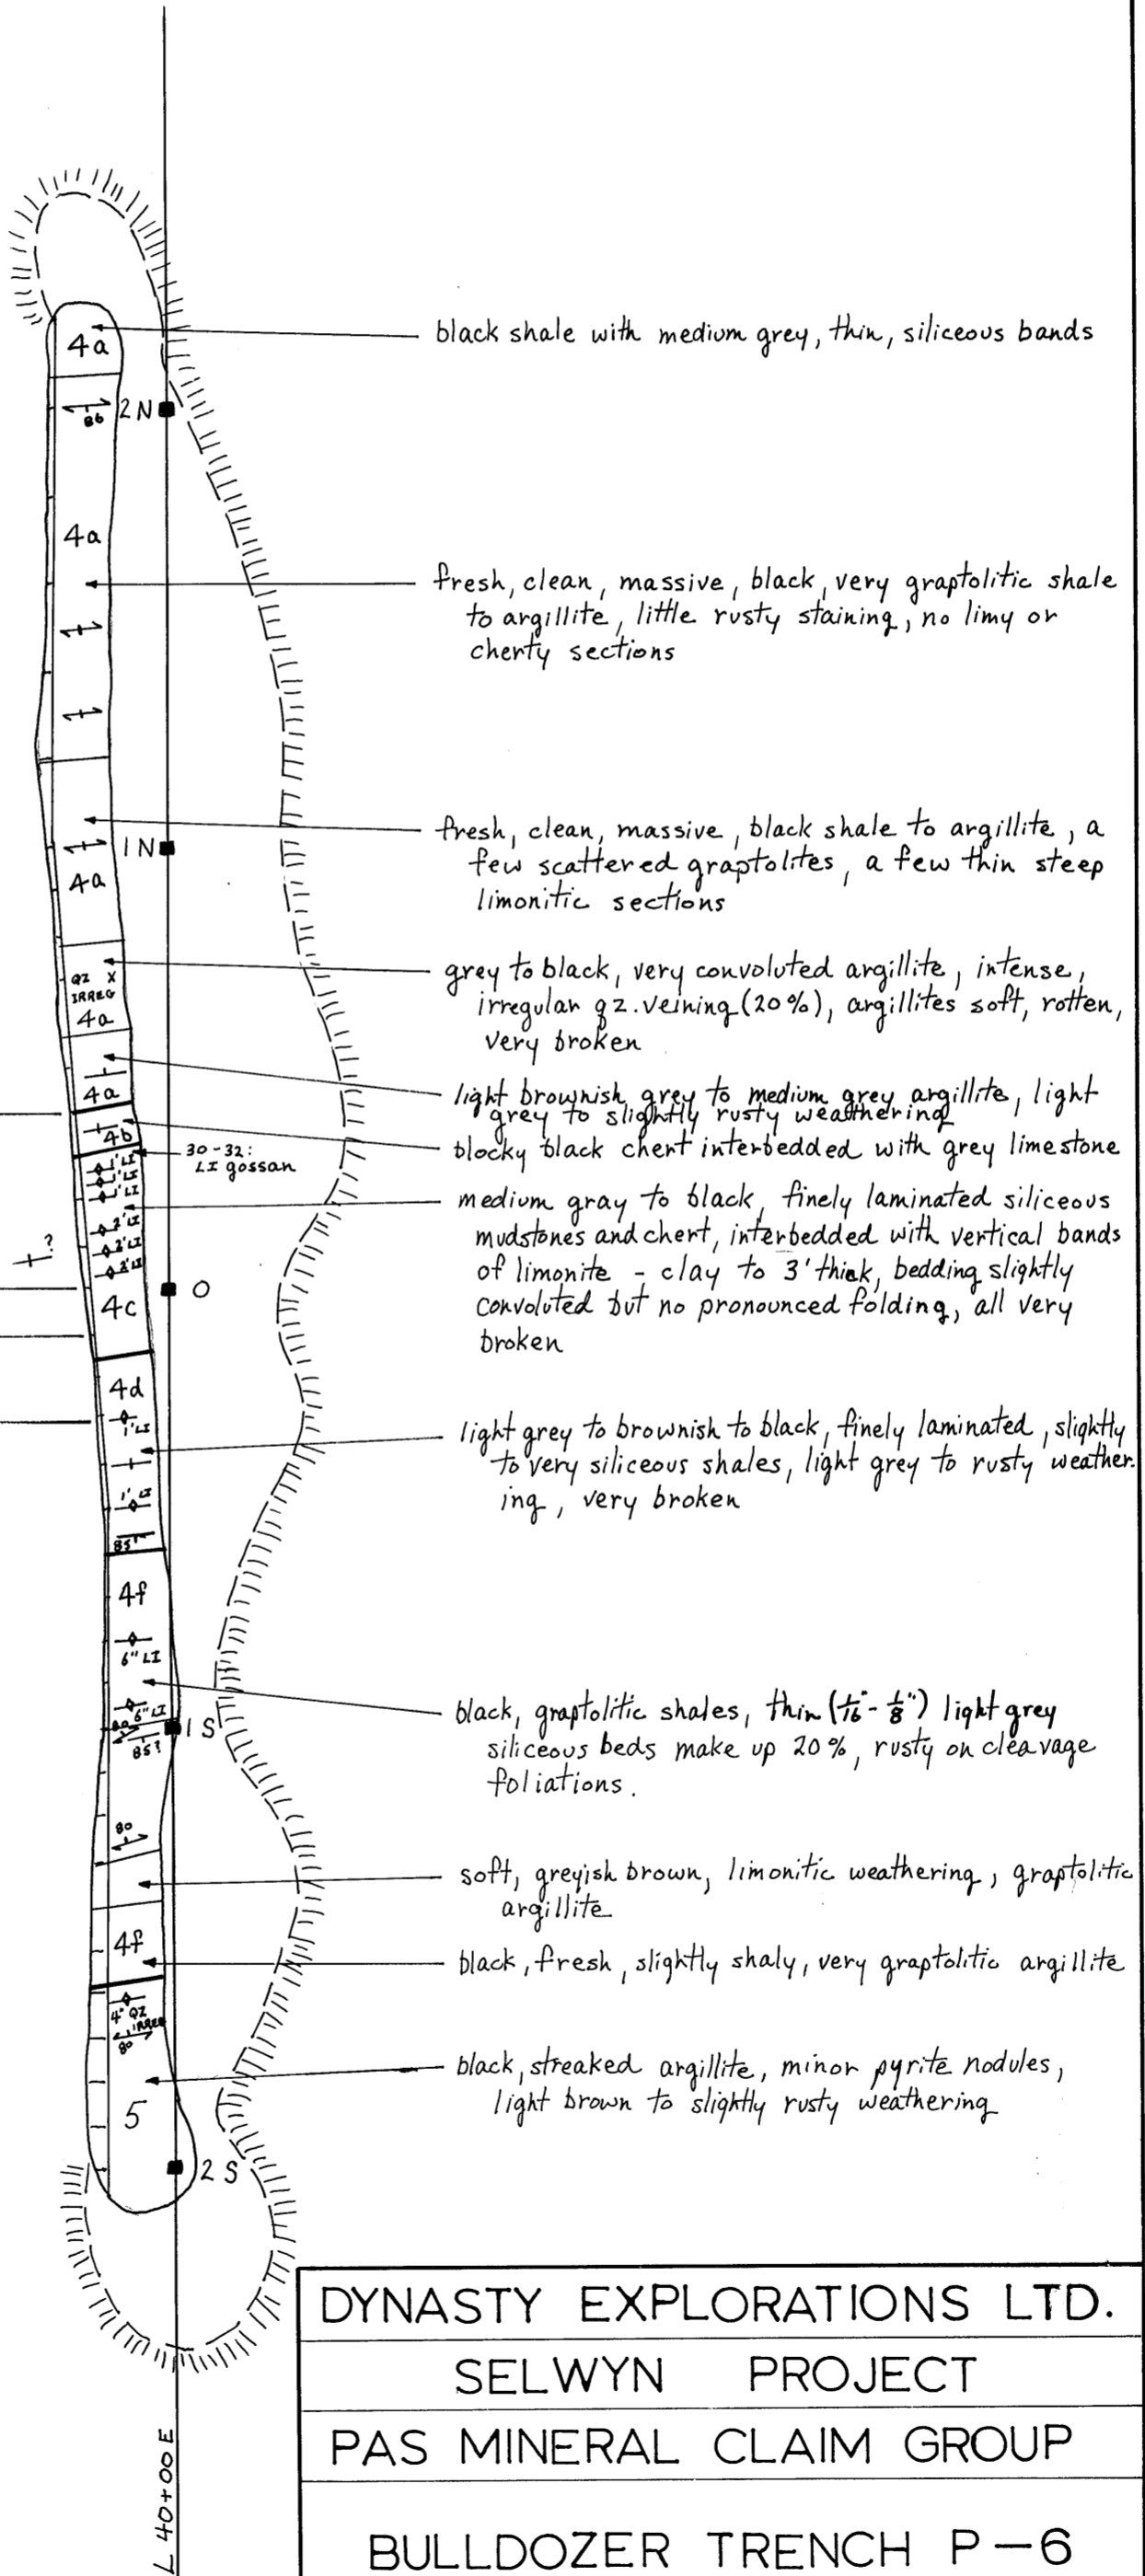 4a
black shale with medium grey, thin, siliceous bands
86
2N
4a
fresh, clean, massive, black, very graptolitic shale
to argillite, little rusty staining, no limy or
cherty sections
1N
4a
fresh, clean, massive, black shale to argillite, a
few scattered graptolites, a few thin steep
limonitic sections
QZ X
IRREG
4a
grey to black, very convoluted argillite, intense,
irregular qz. veining (20%), argillites soft, rotten,
very broken
4a
light brownish grey to medium grey argillite, light
grey to slightly rusty weathering
4b
blocky black chert interbedded with grey limestone
30-32:
LI gossan
1' LI
1' LI
1' LI
2' LI
2' LI
2' LI
?
4c
0
medium gray to black, finely laminated siliceous
mudstones and chert, interbedded with vertical bands
of limonite - clay to 3' thick, bedding slightly
convoluted but no pronounced folding, all very
broken
4d
1' LI
1' LI
85
light grey to brownish to black, finely laminated, slightly
to very siliceous shales, light grey to rusty weather-
ing, very broken
4f
6" LI
6" LI
80
85?
1S
black, graptolitic shales, thin (1/16" - 1/8") light grey
siliceous beds make up 20%, rusty on cleavage
foliations.
80
soft, greyish brown, limonitic weathering, graptolitic
argillite
4f
black, fresh, slightly shaly, very graptolitic argillite
4" QZ
IRREG
80
5
black, streaked argillite, minor pyrite nodules,
light brown to slightly rusty weathering
2S
L 40+00E
DYNASTY EXPLORATIONS LTD.
SELWYN PROJECT
PAS MINERAL CLAIM GROUP
BULLDOZER TRENCH P-6